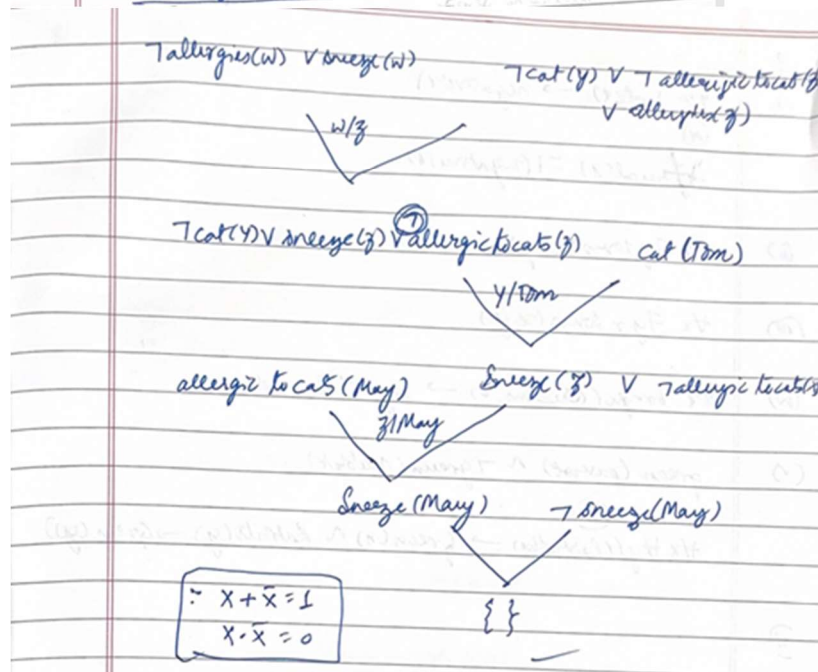 ¬allergies(w) ∨ sneeze(w)
¬cat(y) ∨ ¬allergictocat(z
∨ allergies(z)
w/z
¬cat(Y) ∨ sneeze(z) ∨ ¬allergictocats(z) cat (Tom)
Y/Tom
allergic to cats (May) Sneeze (z) ∨ ¬allergic tocats(z
z/May
Sneeze (Mary) ¬ sneeze(May)
{ }
∵ X + X̄ = 1
X · X̄ = 0